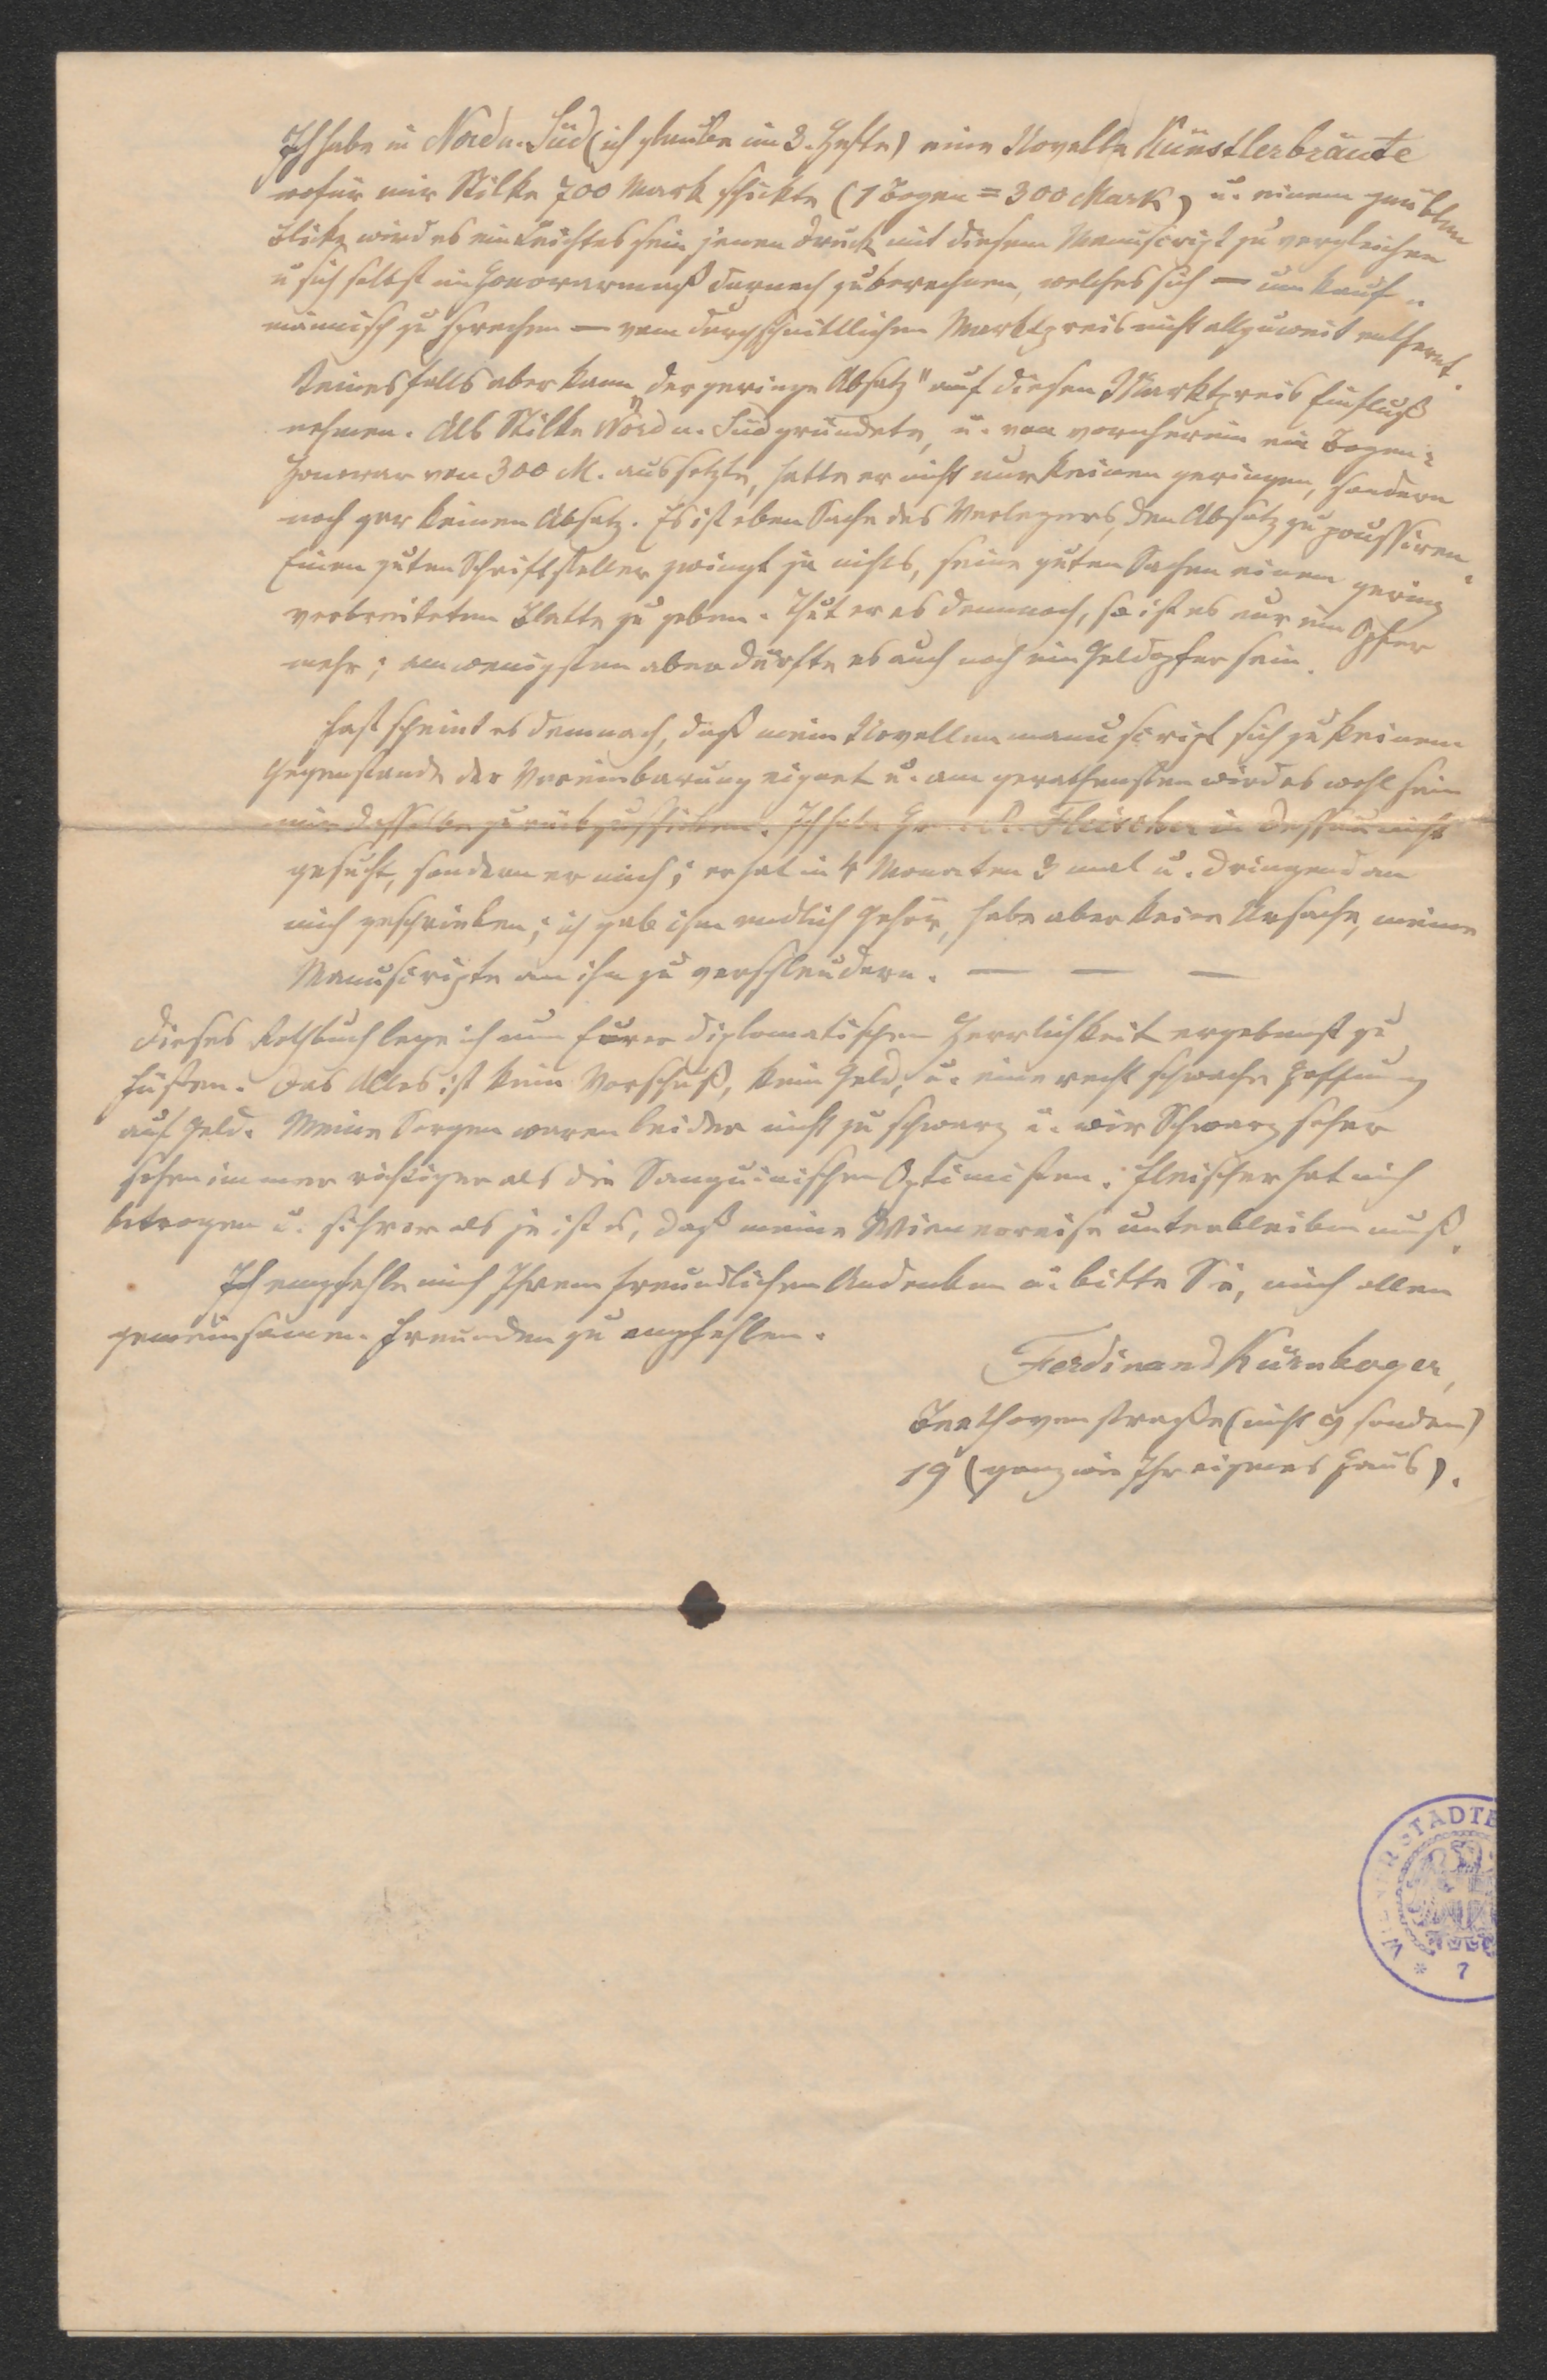 Ich habe in Nord u. Süd (ich glaube im 3. Hefte) eine Novelle Künstlerbräute
wofür mir Stilke 700 Mark schickte (1 Bogen = 300 Mark) u. einem geübten
Blicke wird es ein Leichtes sein jenen Druck mit diesem Manuscript zu vergleichen
u sich selbst ein Honorarmaß darnach zu berechnen, welches sich — um kauf-
männisch zu sprechen — vom durchschnittlichen Marktpreis nicht allzuweit entfernt.
Keinesfalls aber kann „der geringe Absatz" auf diesen Marktpreis Einfluß
nehmen. Als Stilke Nord u. Süd gründete, u. von vornherein ein Bogen-
honorar von 300 M. aussetzte, hatte er nicht nur keinen geringen, sondern
noch gar keinen Absatz. Es ist eben Sache des Verlegers, den Absatz zu poussiren.
Einen guten Schriftsteller zwingt ja nichts, seine guten Sachen einem gering
verbreiteten Blatte zu geben. Thut er es dennoch, so ist es nur ein Opfer
mehr; am wenigsten aber dürfte es auch noch ein Geldopfer sein.
Fast scheint es demnach, daß mein Novellenmanuscript sich zu keinem
Gegenstande der Vereinbarung eignet u. am gerathensten wird es wohl sein
mir dasselbe zurückzuschicken. Ich habe Fleischer in Dessau nicht
gesucht, sondern er mich; er hat in 4 Monaten 3 mal u. dringend an
mich geschrieben; ich gab ihm endlich Gehör, habe aber keine Ursache, meine
Manuscripte an ihn zu verschleudern. — — —
Dieses Rothbuch lege ich nun Eurer diplomatischen Herrlichkeit ergebenst zu
Füßen. Das Alles ist kein Vorschuß, kein Geld, u. eine recht schwache Hoffnung
auf Geld. Meine Sorgen waren leider nicht zu schwarz u. wir Schwarzseher
sehen immer richtiger als die Sanguinischen Optimisten. Fleischer hat mich
betrogen u. sichrer als je ist es, daß meine Wienerreise unterbleiben muß.
Ich empfehle mich Ihrem freundlichen Andenken u. bitte Sie, mich allen
gemeinsamen Freunden zu empfehlen.
Ferdinand Kürnberger,
Beethovenstraße (nicht 9 sondern)
19 (ganz wie Ihr eigenes Haus).
WIENER STADTB
* 7